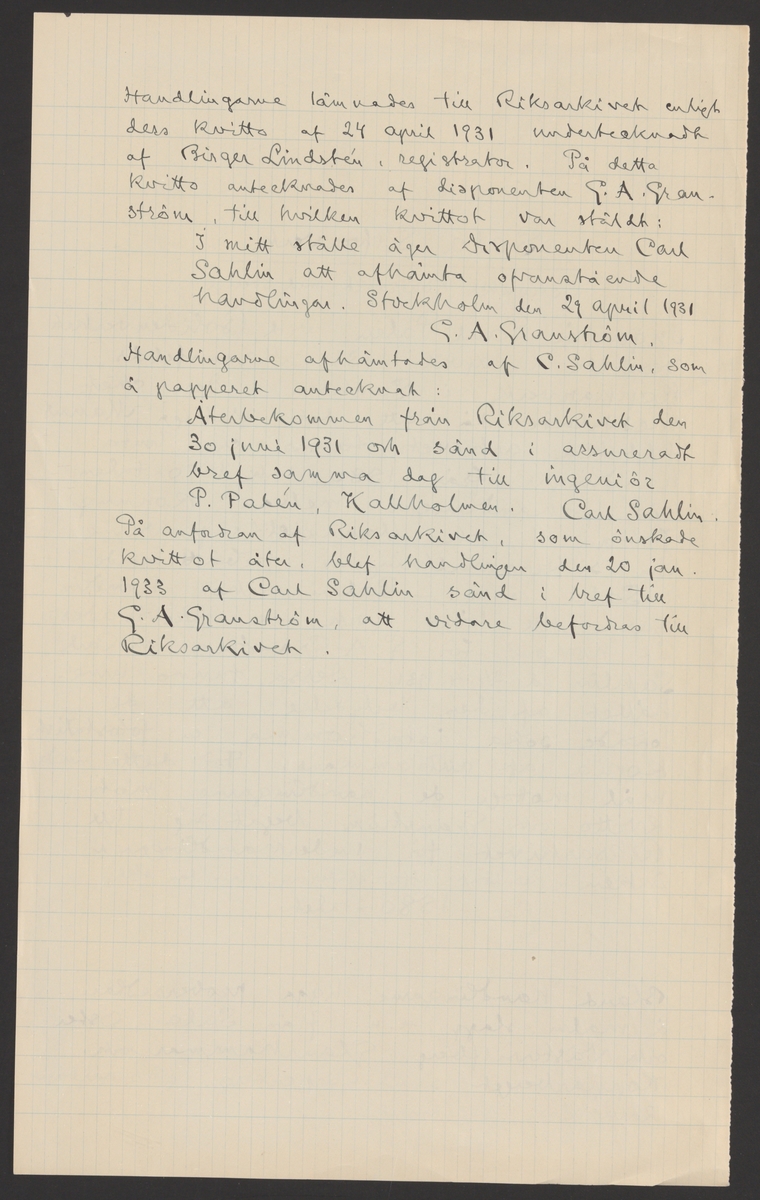 Handlingarne lämnades till Riksarkivet enligt
ders kvitto af 24 april 1931 undertecknadt
af Birger Lindstén, registrator. På detta
kvitto antecknades af disponenten G. A. Gran-
ström, till hvilken kvittot var stäldt:
I mitt ställe äger Disponenten Carl
Sahlin att afhämta ofvanstående
handlingar. Stockholm den 29 april 1931
G. A. Granström.
Handlingarne afhämtades af C. Sahlin, som
å papperet antecknat:
Återbekommen från Riksarkivet den
30 juni 1931 och sänd i assureradt
bref samma dag till ingeniör
P. Palén, Kallholmen. Carl Sahlin.
På anfordran af Riksarkivet, som önskade
kvittot åter, blef handlingen den 20 jan.
1933 af Carl Sahlin sänd i bref till
G. A. Granström, att vidare befordras till
Riksarkivet.